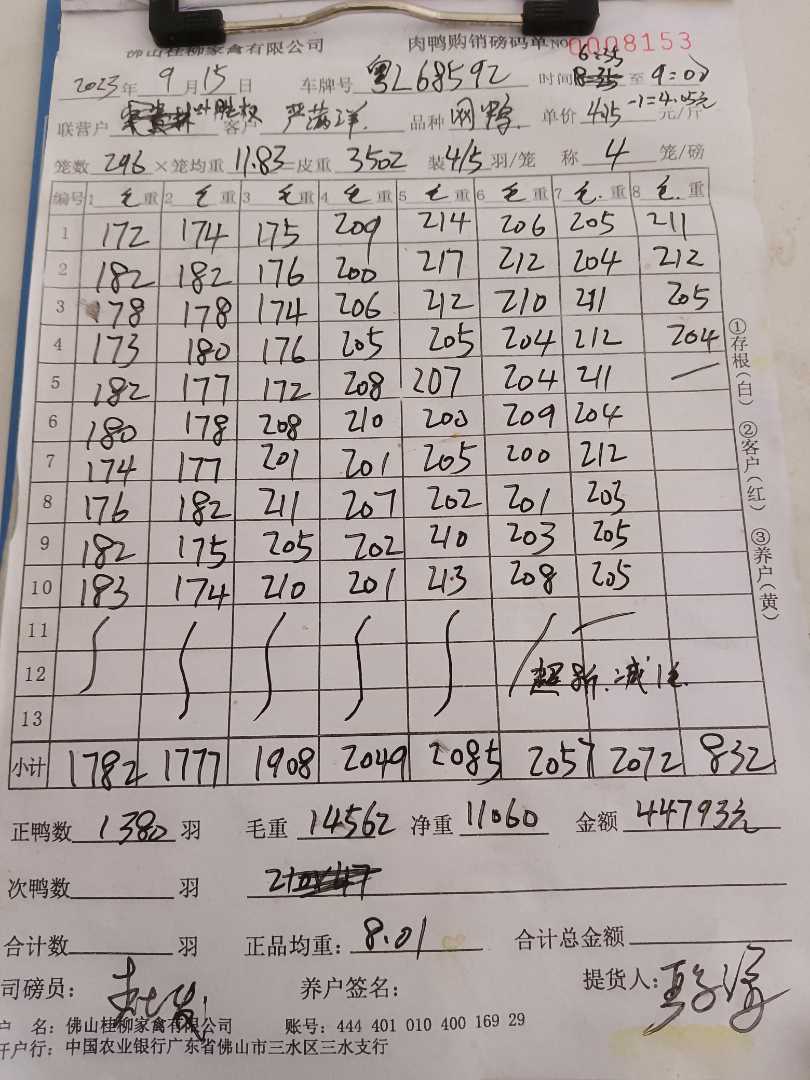 佛山桂柳家禽有限公司 肉鸭购销磅码单 NO 0008153
2023年 9月 15日 车牌号 粤L68592 时间 6:35 至 9:00
联营户 客户 品种 单价 元/斤
笼数 296 ×笼均重 11.83 =皮重 3502 装 4/5 羽/笼 称 4 笼/磅
编号 1 毛重 2 毛重 3 毛重 4 毛重 5 毛重 6 毛重 7 毛重 8 毛重
1 172 174 175 209 214 206 205 211
2 182 182 176 200 217 212 204 212
3 178 178 174 206 212 210 211 205
4 173 180 176 205 205 204 212 204
5 182 177 172 208 207 204 211 —
6 180 178 208 210 200 209 204
7 174 177 201 201 205 200 212
8 176 182 211 207 202 201 203
9 182 175 205 202 210 203 205
10 183 174 210 201 213 208 205
11
12
13
小计 1782 1777 1908 2049 2085 2057 2072 832
正鸭数 1380 羽 毛重 14562 净重 11060 金额 44793元
次鸭数 羽
合计数 羽 正品均重: 8.01 合计总金额
司磅员: 养户签名: 提货人:
户 名: 佛山桂柳家禽有限公司 账号: 444 401 010 400 169 29
开户行: 中国农业银行广东省佛山市三水区三水支行
①存根(白) ②客户(红) ③养户(黄)